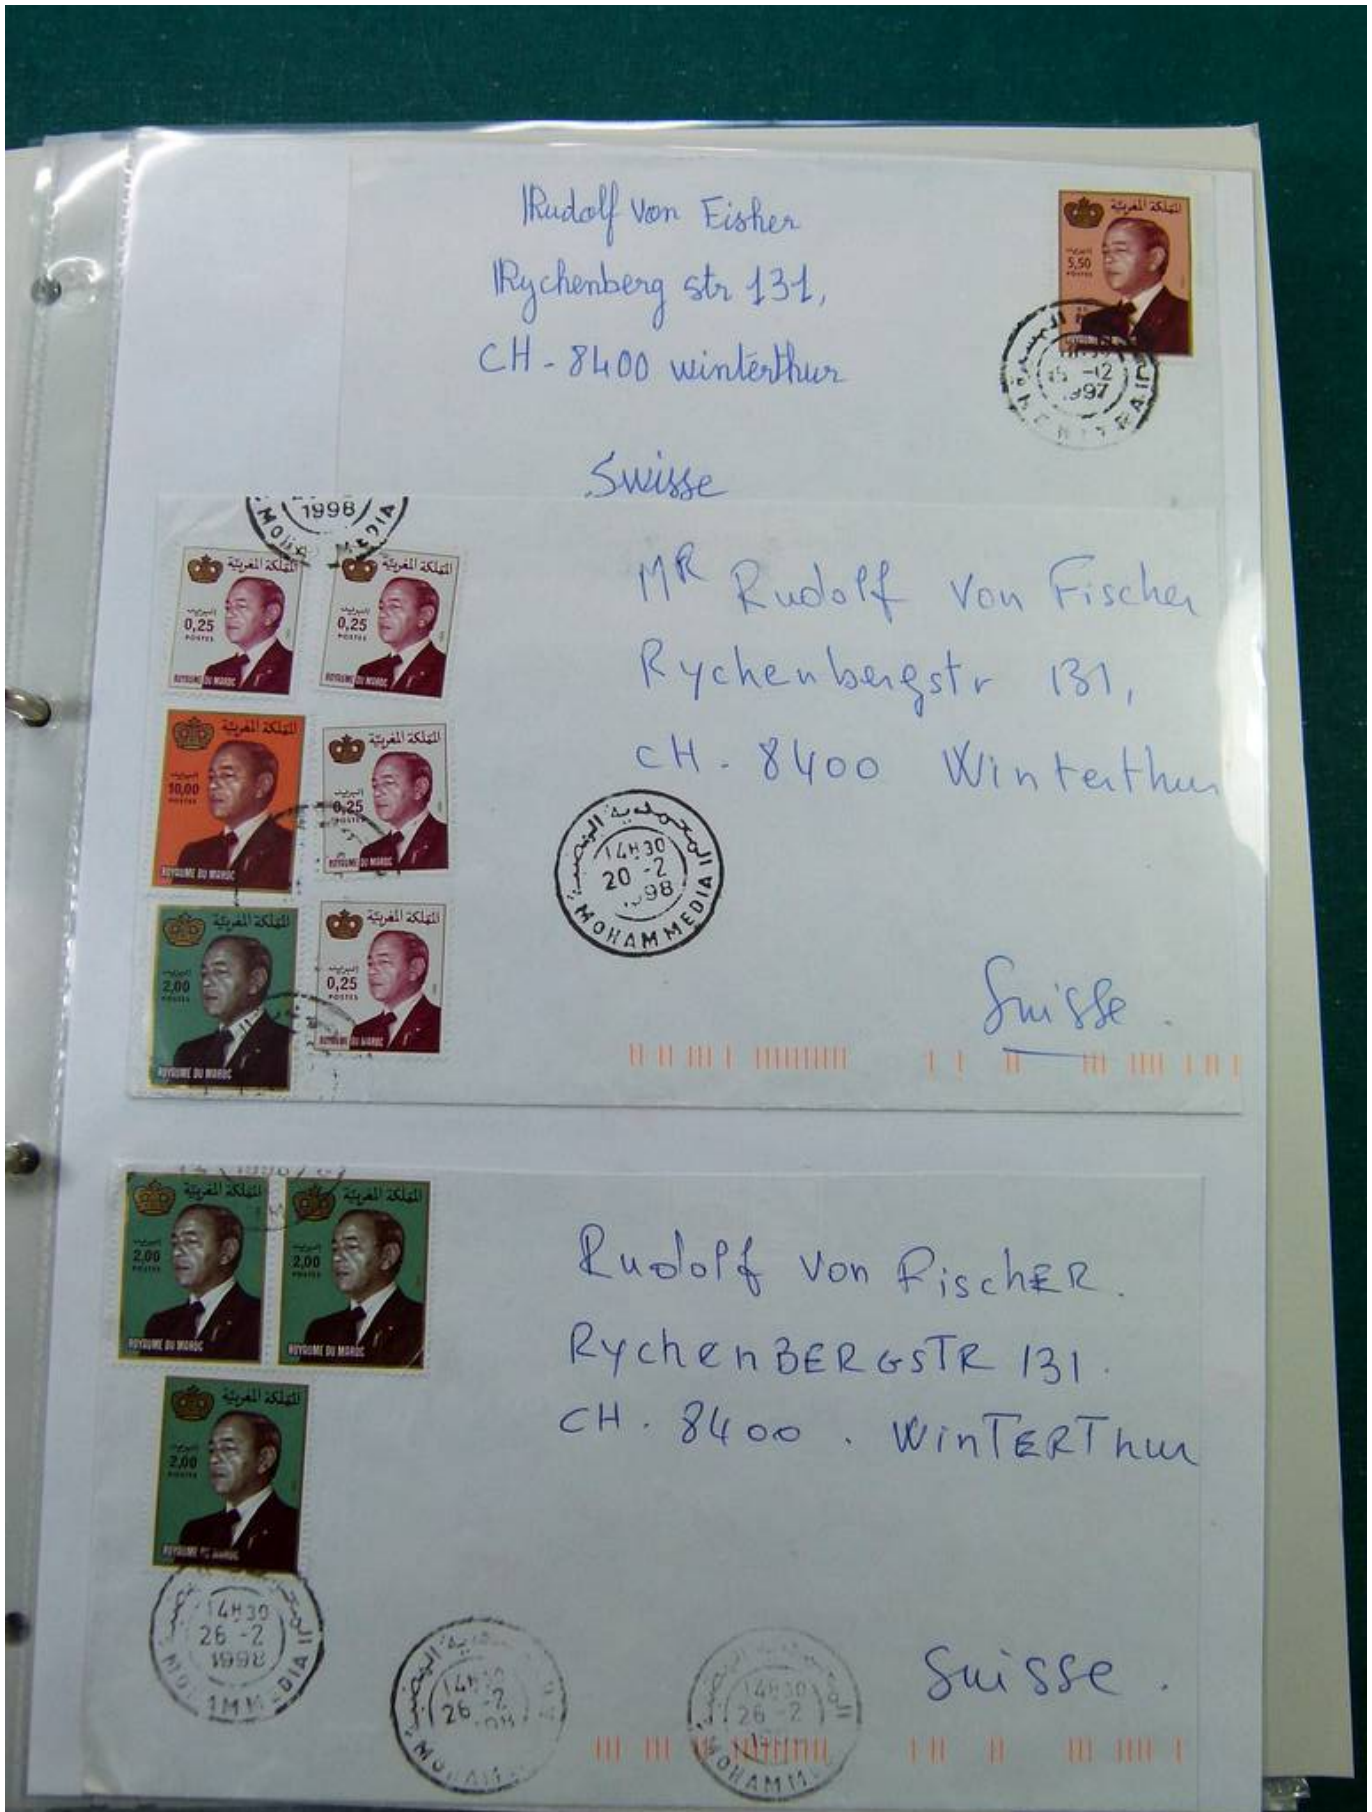 Rudolf Von Eisher
Rychenberg str 131,
CH - 8400 winterthur
Swisse
المملكة المغربية
البريد
5,50
POSTES
15 -12
1997
KENITRA
1998
MOHAMMEDIA
المملكة المغربية
البريد
0,25
POSTES
ROYAUME DU MAROC
المملكة المغربية
البريد
0,25
POSTES
ROYAUME DU MAROC
المملكة المغربية
البريد
10,00
POSTES
ROYAUME DU MAROC
المملكة المغربية
البريد
0,25
POSTES
ROYAUME DU MAROC
المملكة المغربية
البريد
2,00
POSTES
ROYAUME DU MAROC
المملكة المغربية
البريد
0,25
POSTES
ROYAUME DU MAROC
MR Rudolf Von Fischer
Rychenbergstr 131,
CH - 8400 Winterthur
المحمدية الرئيسية
14H30
20 -2
1998
MOHAMMEDIA
Suisse.
المملكة المغربية
البريد
2,00
POSTES
ROYAUME DU MAROC
المملكة المغربية
البريد
2,00
POSTES
ROYAUME DU MAROC
المملكة المغربية
البريد
2,00
POSTES
ROYAUME DU MAROC
Rudolf Von FischER.
RychenBERGSTR 131.
CH. 8400. WinTERThur
Suisse.
14H30
26 -2
1998
MOHAMMEDIA
14H30
26 -2
MOHAM
14H30
26 -2
MOHAMM